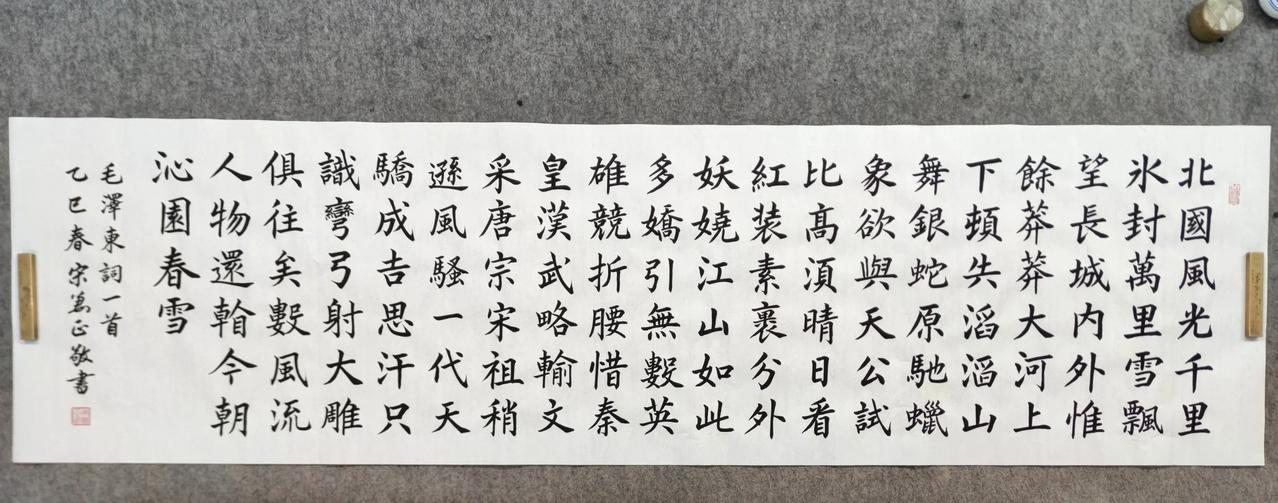 北國風光千里
氷封萬里雪飄
望長城内外惟
餘莽莽大河上
下頓失滔滔山
舞銀蛇原馳蠟
象欲與天公試
比髙湏晴日看
紅装素裹分外
妖嬈江山如此
多嬌引無數英
雄競折腰惜秦
皇漢武略輸文
采唐宗宋祖稍
遜風騷一代天
驕成吉思汗只
識彎弓射大雕
俱往矣數風流
人物還看今朝
沁園春雪
毛澤東詞一首
乙巳春宋為正敬書